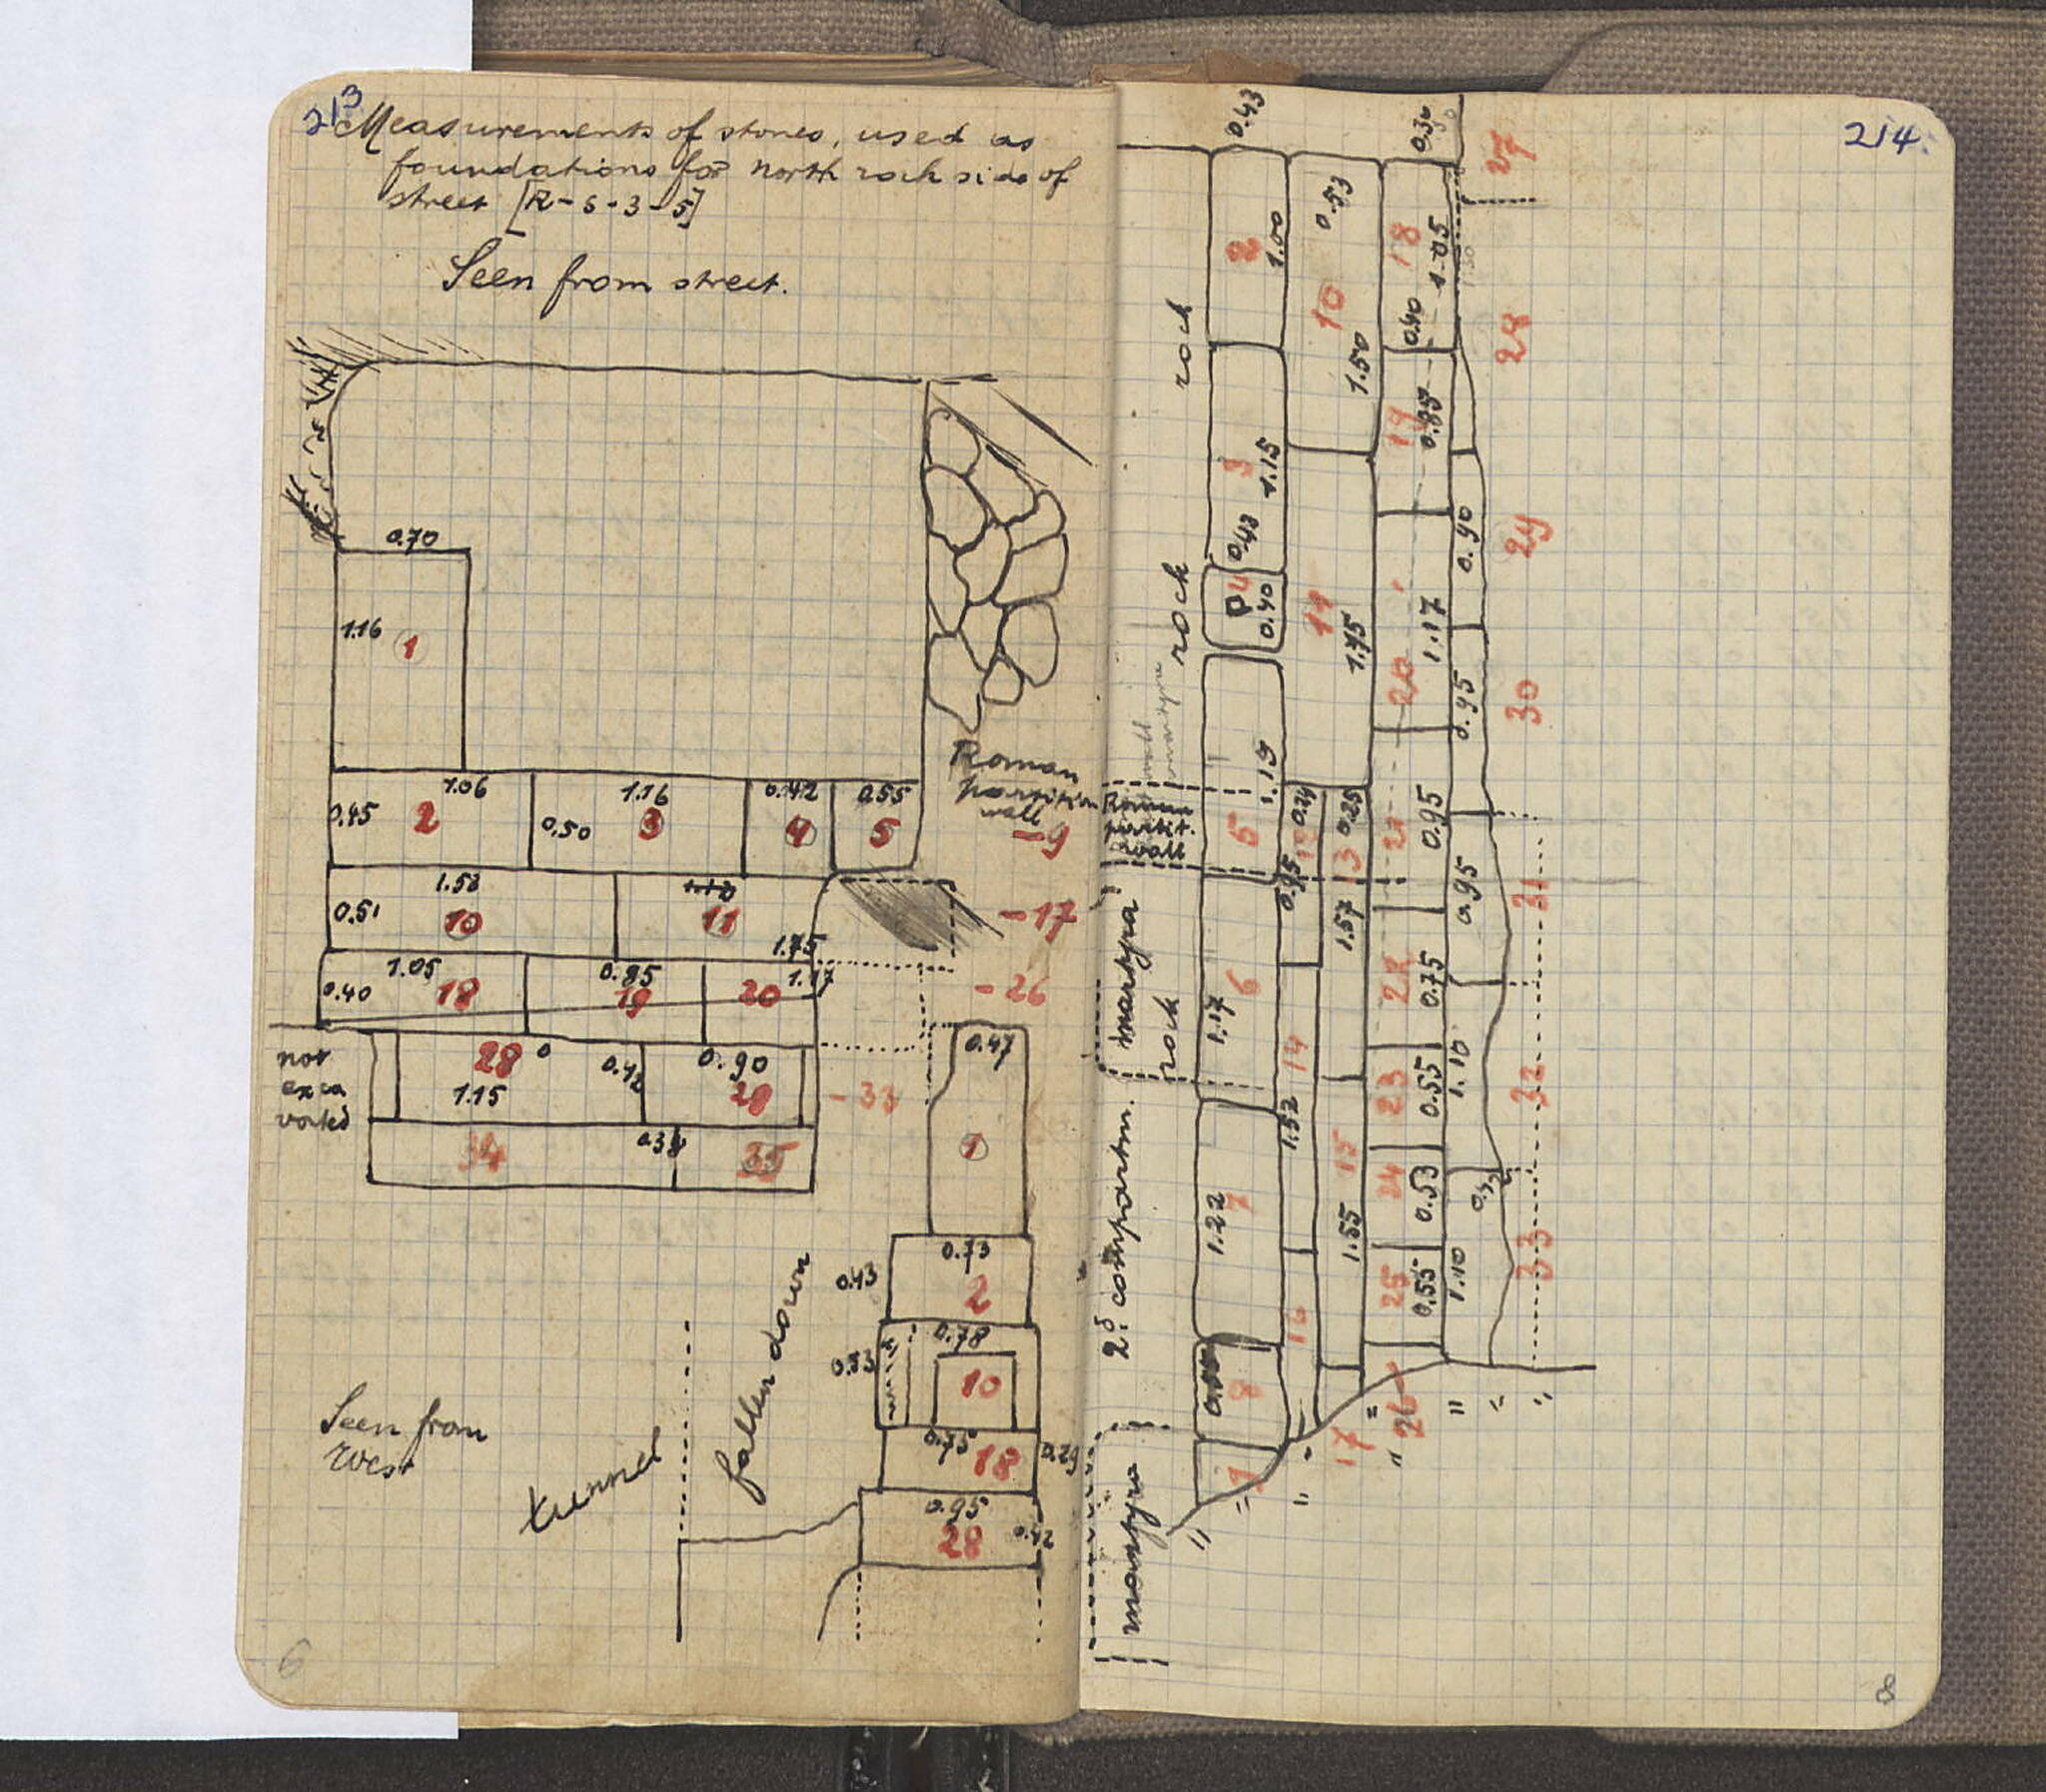 213
Measurements of stones, used as
foundations for north rock side of
street [R-S-3-5]
Seen from street.
0.70
1.16
1
Roman
partition
wall
1.06
1.16
0.42
0.55
0.45
2
0.50
3
4
5
-9
1.52
0.51
10
11
1.75
-17
1.05
0.95
1.17
0.40
18
19
20
-26
not
exca
vated
28
0.42
0.90
1.15
29
-33
34
35
0.47
1
0.73
0.43
2
0.78
0.53
10
0.75
18
0.29
0.95
28
0.42
Seen from
West
tunnel
fallen down
6
214.
0.43
0.30
27
2
1.00
0.53
10
1.50
18
1.05
0.40
28
rock
3
1.15
0.43
19
0.85
0.90
29
rock
4
0.40
11
1.75
20
1.17
0.95
30
Roman
partit.
wall
5
1.19
0.24
0.95
13
0.25
1.57
21
0.95
0.95
31
martyra
rock
6
1.17
14
1.52
22
0.75
23
0.55
1.10
32
2d compartm.
7
1.22
15
1.55
24
0.53
25
0.55
1.10
33
8
16
17
26
9
martyro
8